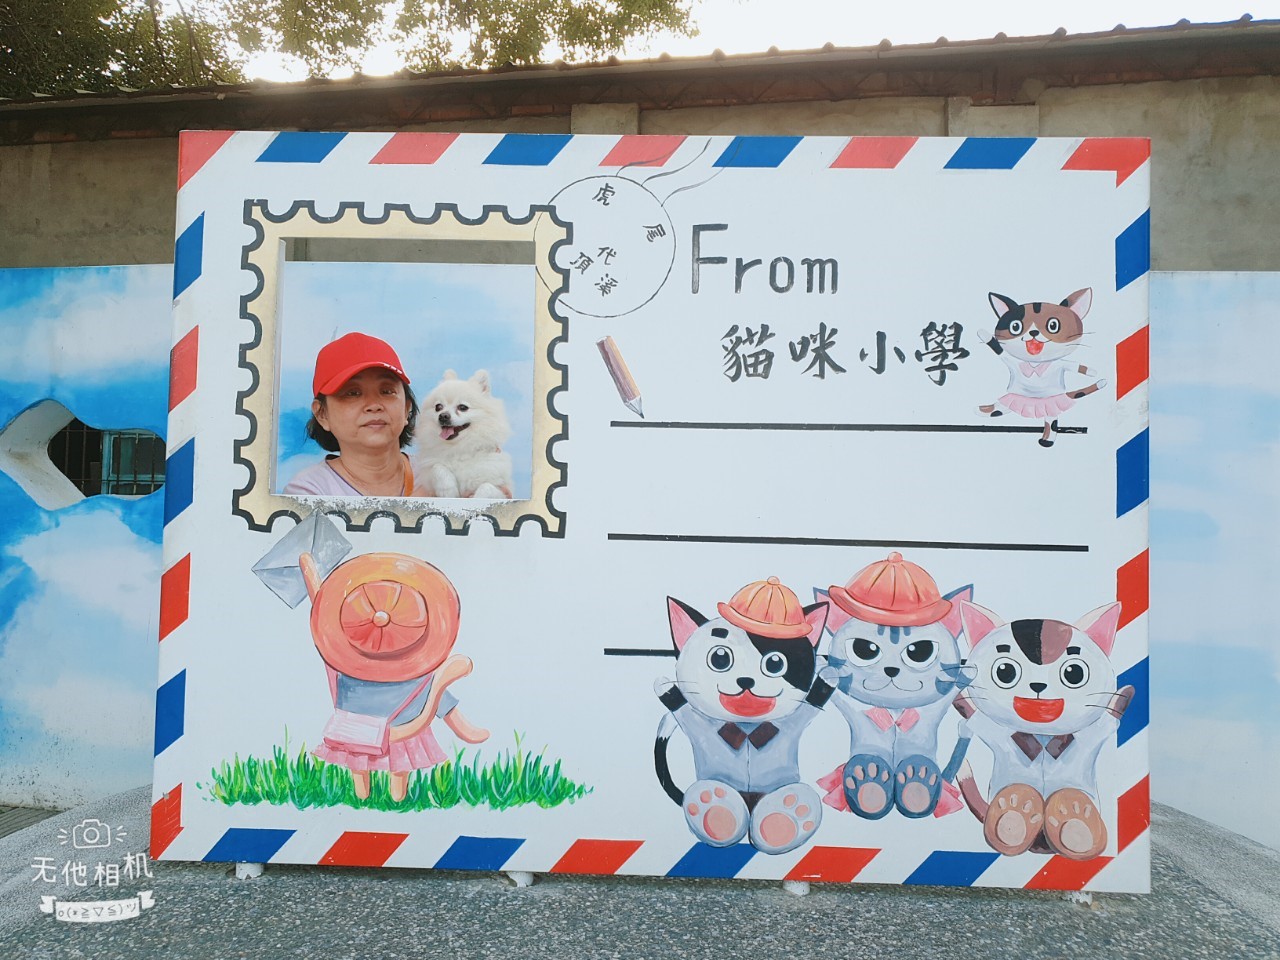 虎尾
代
頂溪
From
貓咪小學
无他相机